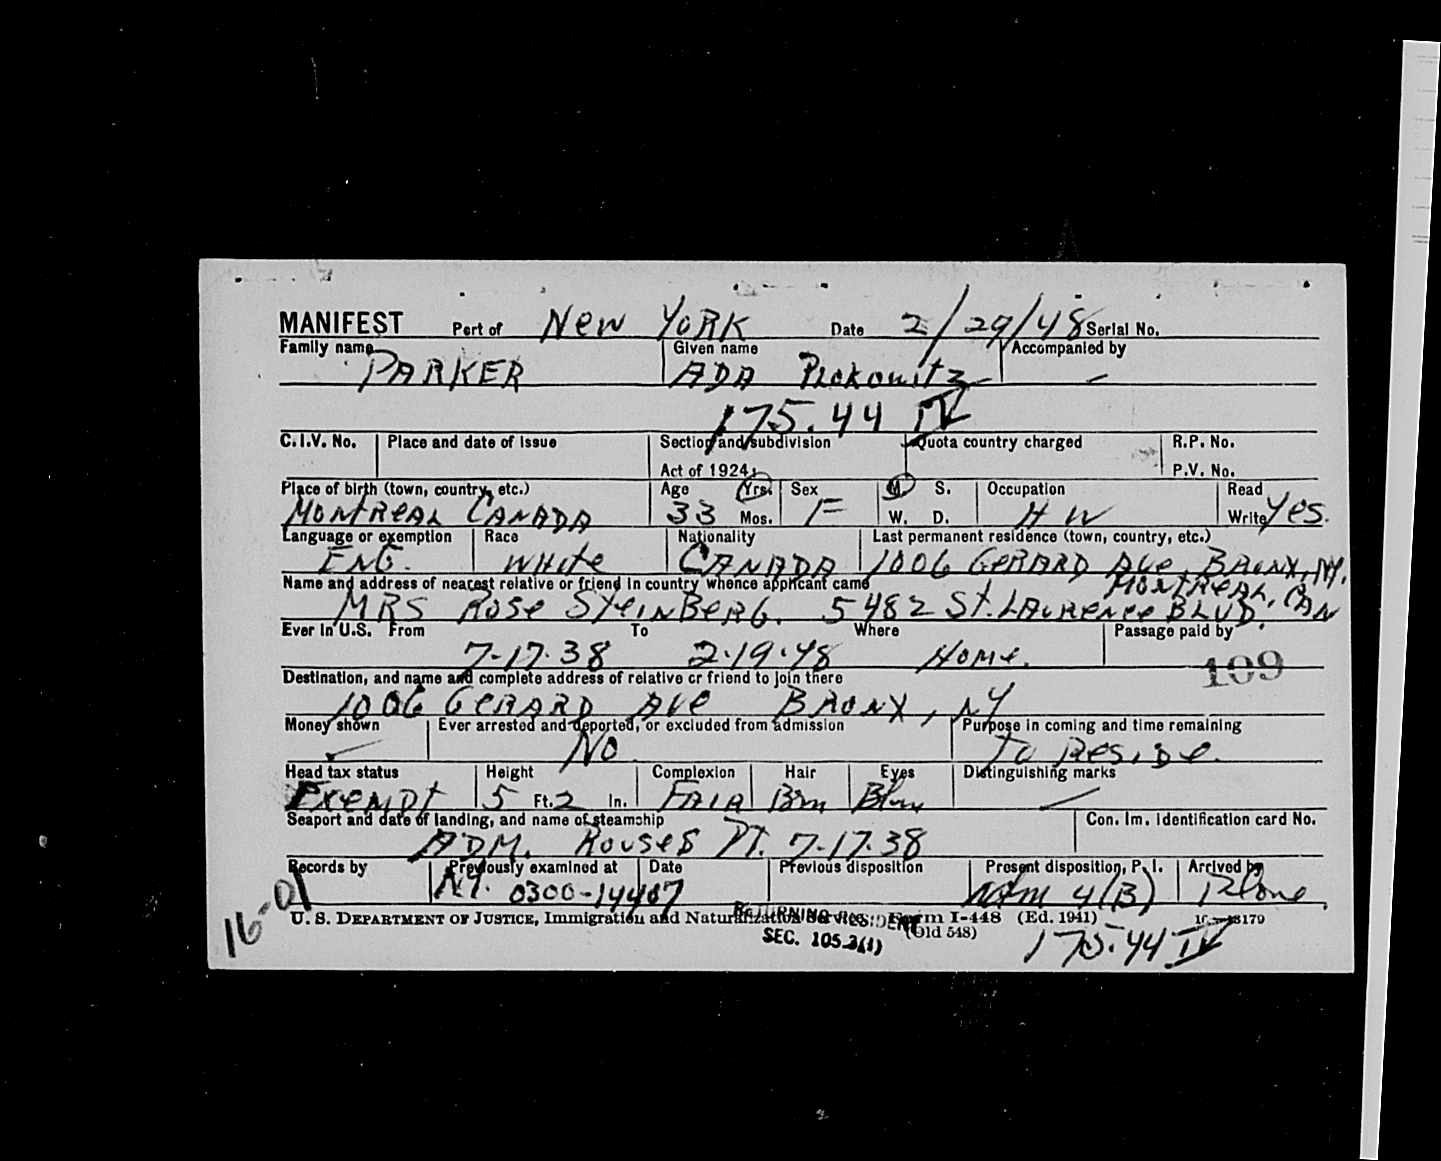 MANIFEST Port of New York Date 2/29/48 Serial No.
Family name Given name Accompanied by
PARKER ADA Plokowitz –
175.44 IV
C.I.V. No. Place and date of issue Section and subdivision Quota country charged R.P. No.
Act of 1924: P.V. No.
Place of birth (town, country, etc.) Age Yrs. Sex M. S. Occupation Read
Montreal Canada 33 Mos. F W. D. HW Write Yes.
Language or exemption Race Nationality Last permanent residence (town, country, etc.)
Eng. White Canada 1006 Gerard Ave, Bronx, NY.
Name and address of nearest relative or friend in country whence applicant came Montreal, Can
Mrs Rose Steinberg. 5482 St. Laurence Blvd.
Ever in U.S. From To Where Passage paid by
7-17-38 2-19-48 Home. 109
Destination, and name and complete address of relative or friend to join there
1006 Gerard Ave Bronx, NY
Money shown Ever arrested and deported, or excluded from admission Purpose in coming and time remaining
✓ No To Reside.
Head tax status Height Complexion Hair Eyes Distinguishing marks
Exempt 5 Ft. 2 In. Fair Brn Blue –
Seaport and date of landing, and name of steamship Con. Im. Identification card No.
ADM. Rouses Pt. 7-17-38
Records by Previously examined at Date Previous disposition Present disposition, P. I. Arrived by
N.Y. 0300-14407 Adm 4(B) Plane
16-01 U. S. Department of Justice, Immigration and Naturalization Service Form I-448 (Ed. 1941)
(Old 548)
RETURNING RESIDENT
SEC. 105.3(1)
175.44 IV